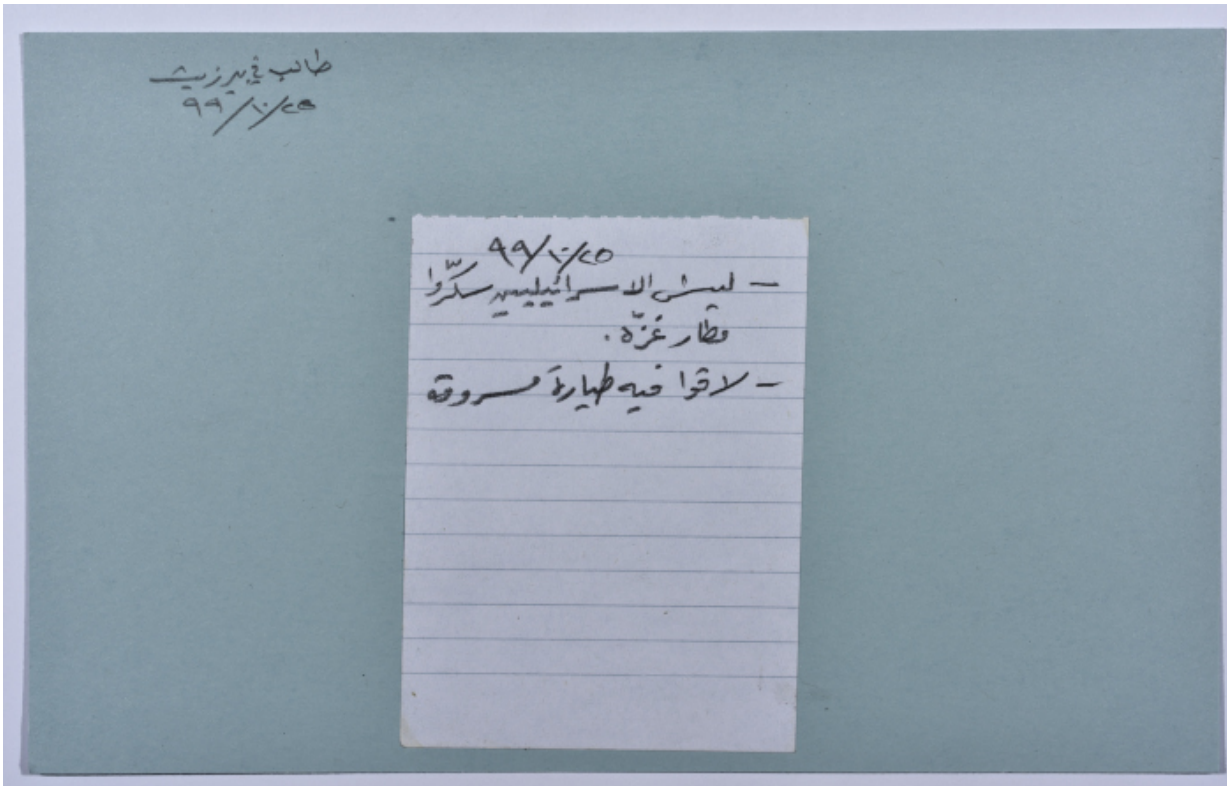 طالب في بير زيت
٩٩/١٠/٢٥
٩٩/١٠/٢٥
- ليش الاسرائيليين سكّروا
مطار غزّة.
- لاقوا فيه طيارة مسروقة